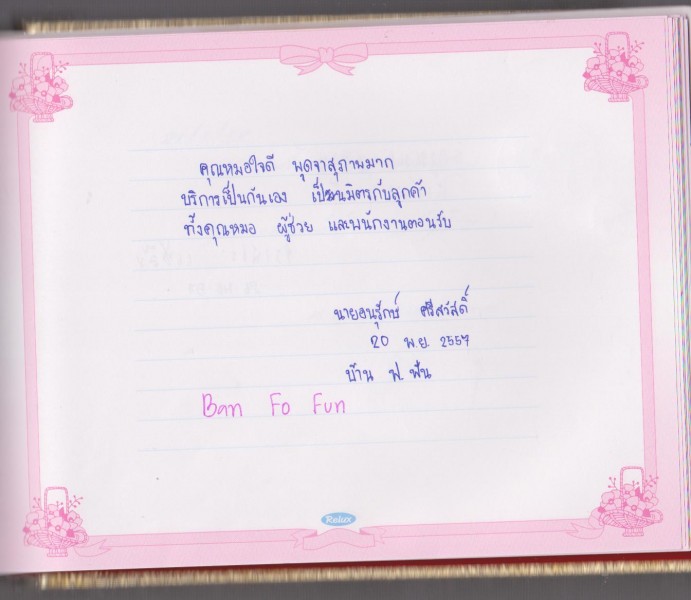 คุณหมอใจดี พูดจาสุภาพมาก
บริการเป็นกันเอง เป็นมิตรกับลูกค้า
ทั้งคุณหมอ ผู้ช่วย และพนักงานตอนรับ
นายอนุรักษ์ ศรีสวัสดิ์
20 พ.ย. 2557
บ้าน ฟ. ฟัน
Ban Fo Fun
Relux